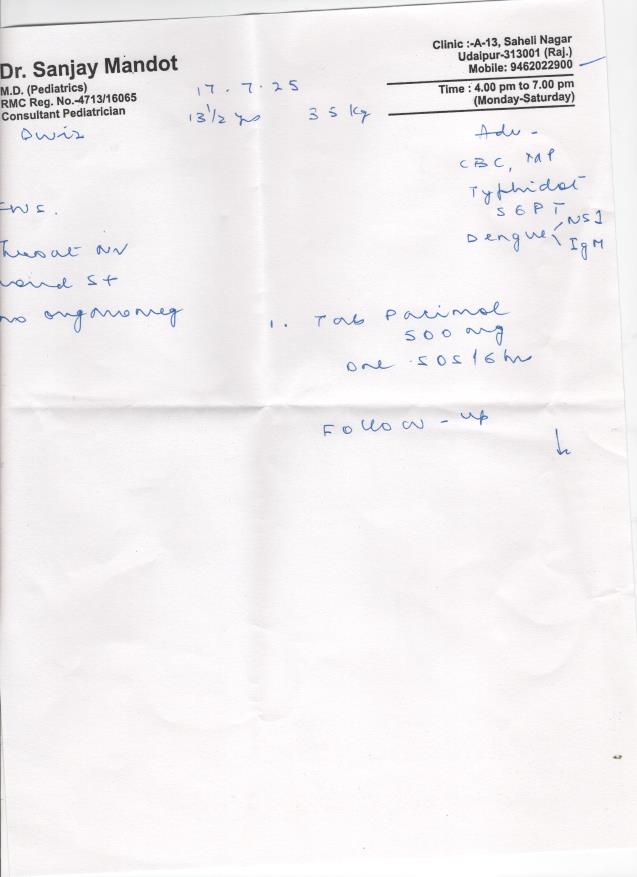 Dr. Sanjay Mandot
M.D. (Pediatrics)
RMC Reg. No.-4713/16065
Consultant Pediatrician
Clinic :-A-13, Saheli Nagar
Udaipur-313001 (Raj.)
Mobile: 9462022900
Time : 4.00 pm to 7.00 pm
(Monday-Saturday)
17.7.25
13 1/2 yrs 35 kg
Adv -
CBC, MP
Typhidot
SGPT
Dengue NS1
IgM
Throat
no
1. Tab
500 mg
One SOS/6 hr
Follow-up